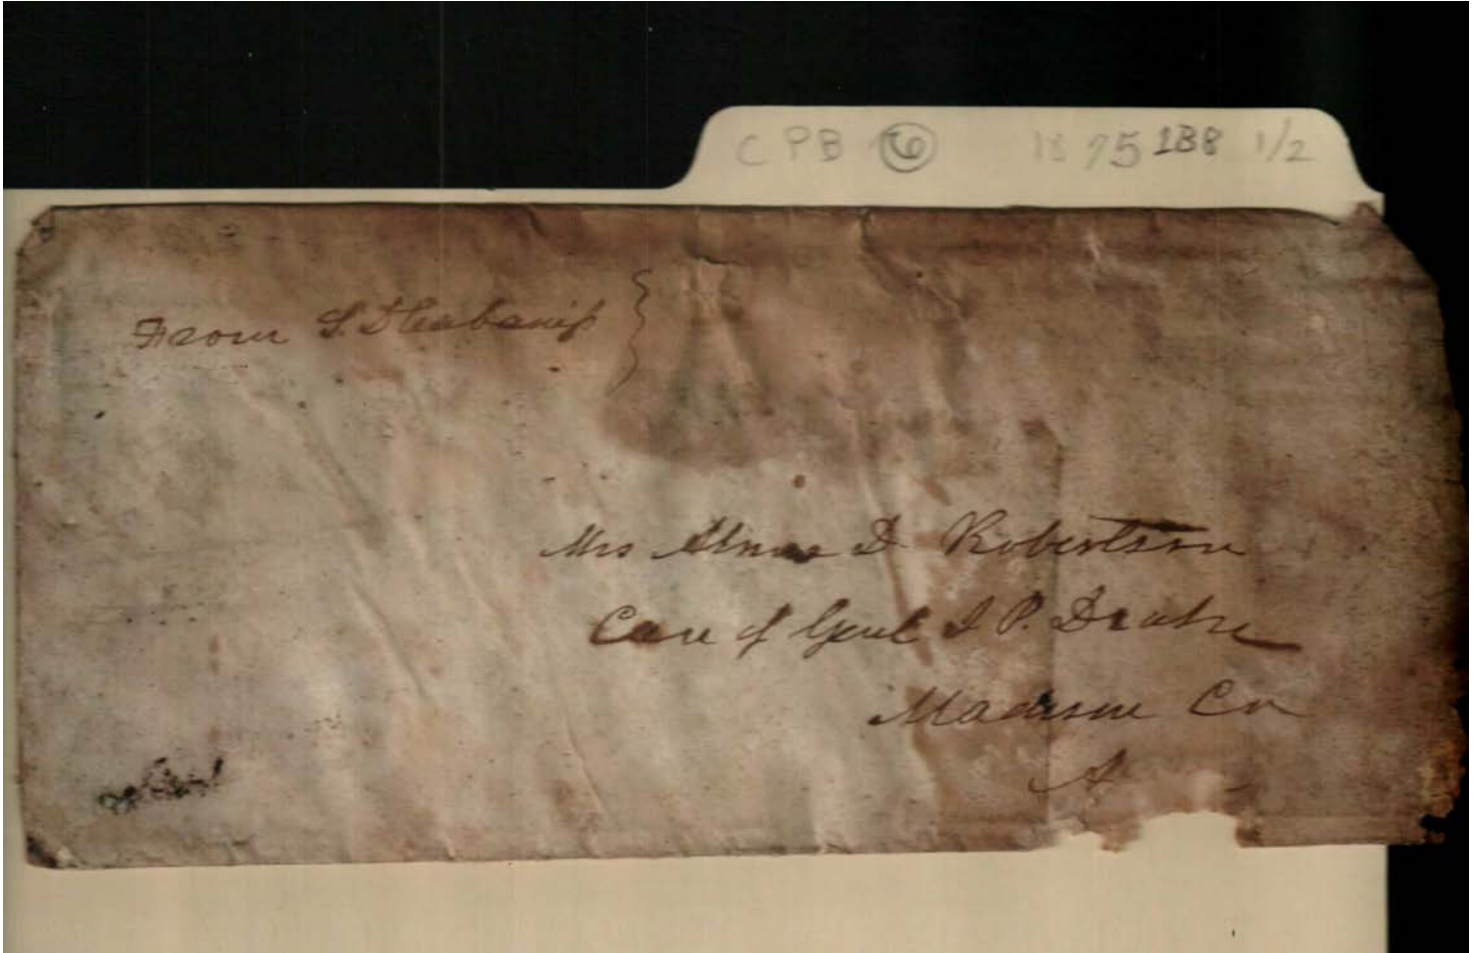 CPB 6 1875 188 1/2
From S. D. Cabaniss
Mrs D. Robertson
Care of Genl J P. Drake
Madison Co
A